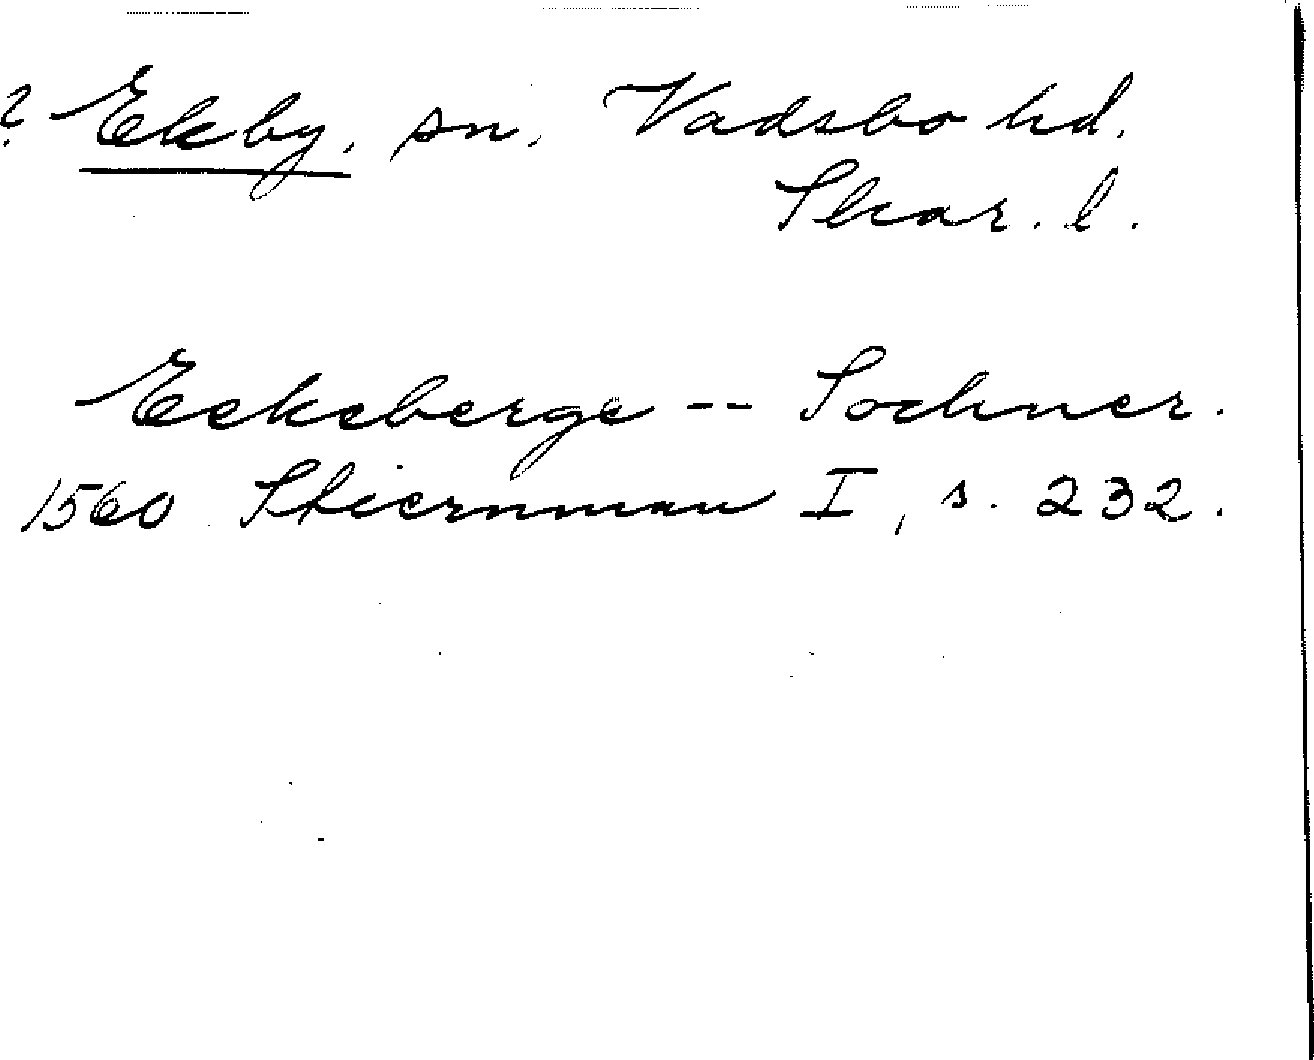 ? Ekby. sn. Vadsbo hd.
Skar. l.
Eekeberge -- Sochner.
1560 Stiernman I, s. 232.